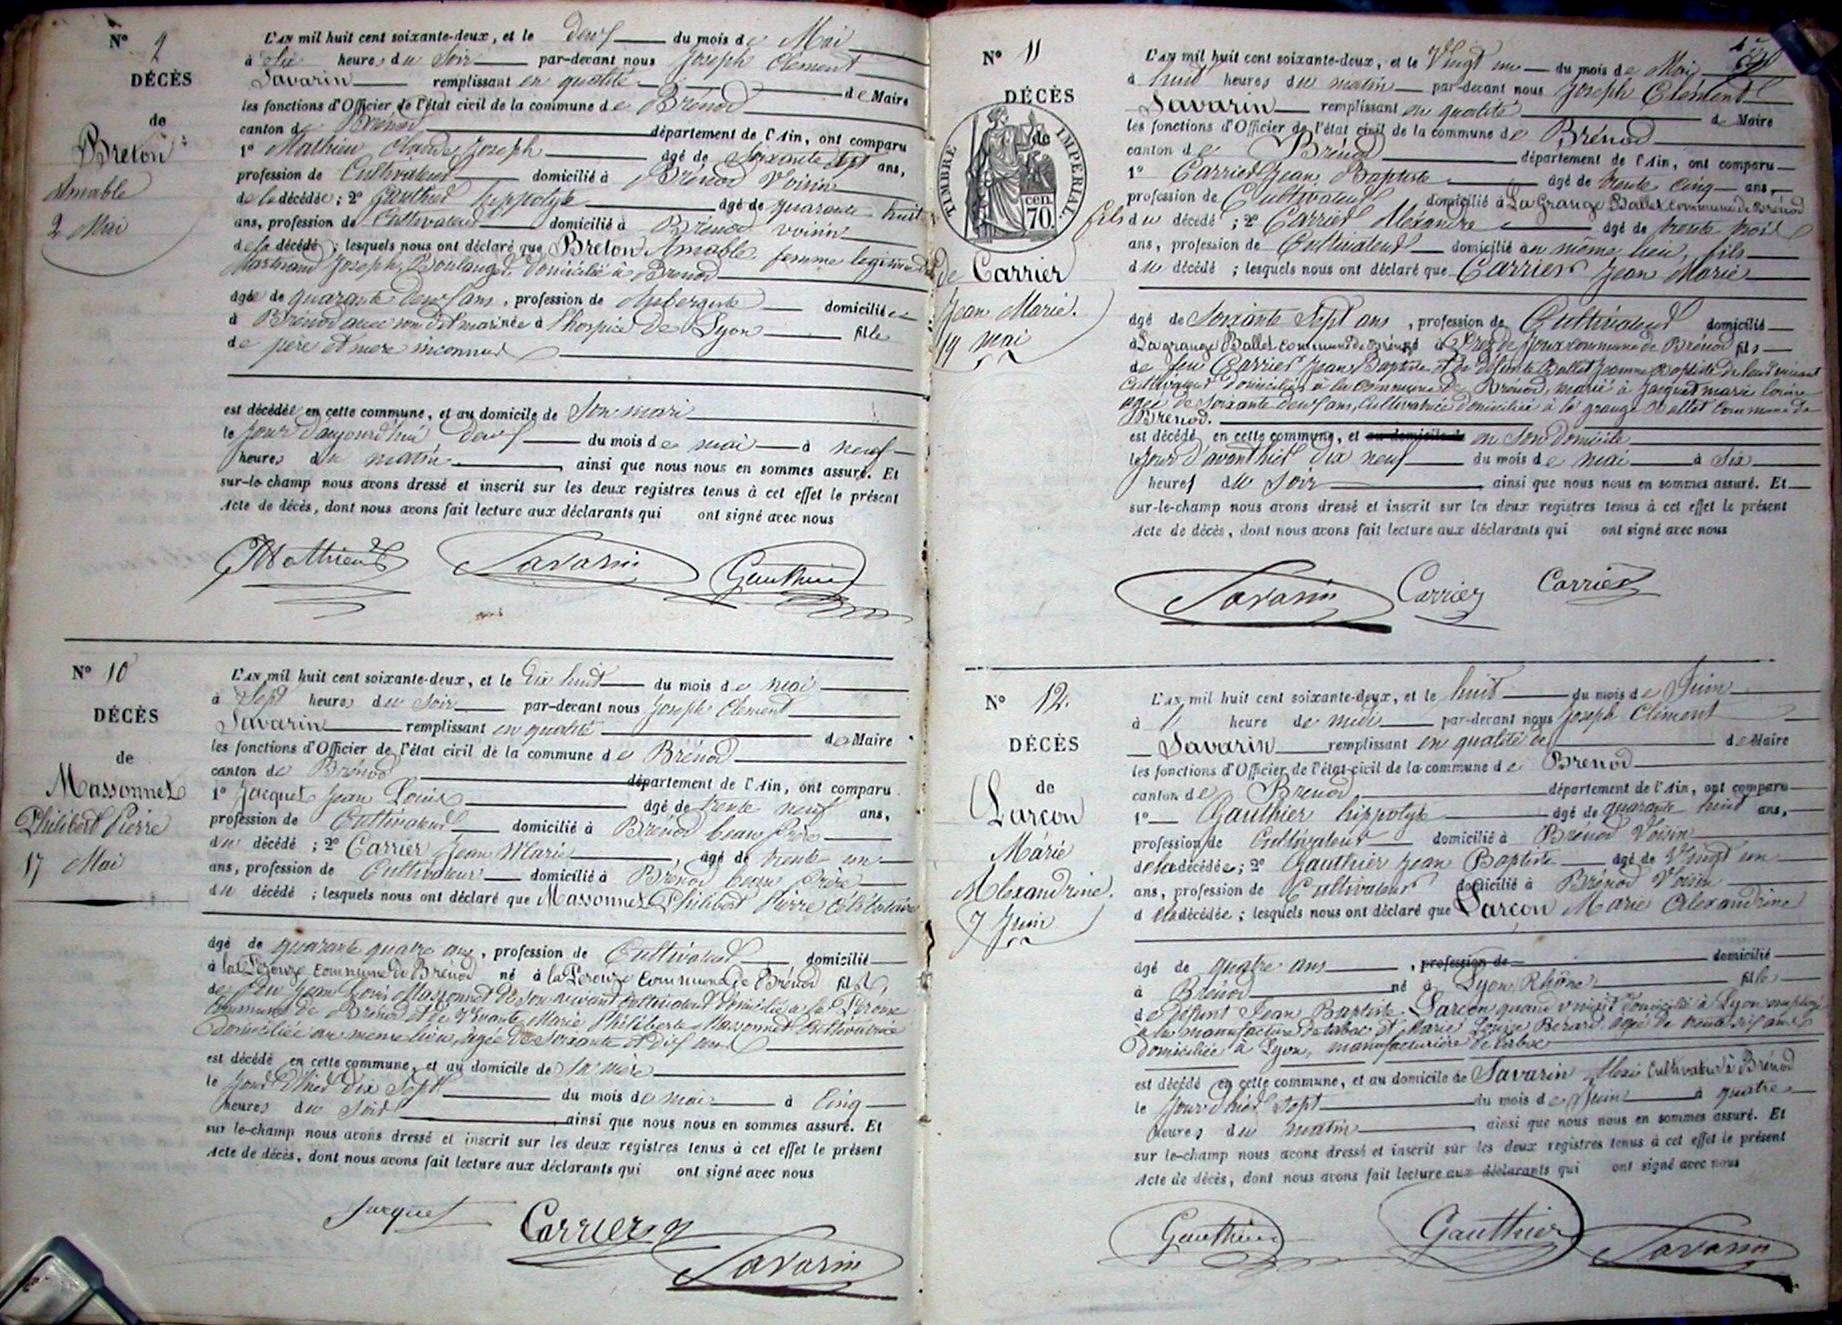 N° 9
DÉCÈS
de
Breton
Amable
2 Mai
L'AN mil huit cent soixante-deux, et le deux du mois de Mai
à Six heures du Soir par-devant nous Joseph Clément
Savarin remplissant en qualité de Maire
les fonctions d'Officier de l'état civil de la commune de Brénod
canton de Brénod département de l'Ain, ont comparu
1° Mathieu Claude Joseph âgé de Soixante ans,
profession de Cultivateur domicilié à Brénod Voisin
de la décédée ; 2° Gauthier hippolyte âgé de quarante huit
ans, profession de Cultivateur domicilié à Brénod voisin
de la décédé ; lesquels nous ont déclaré que Breton Amable femme legitime de
Joseph, Boulanger domicilié à Brenod
âgée de quarante deux ans, profession de Aubergiste domiciliée
à Brénod avec son dit mari née à l'hospice de Lyon fille
de pere et mere inconnus
est décédée en cette commune, et au domicile de Son mari
le jour d'aujourd'hui deux du mois de mai à neuf
heures du matin, ainsi que nous nous en sommes assuré. Et
sur-le-champ nous avons dressé et inscrit sur les deux registres tenus à cet effet le présent
Acte de décès, dont nous avons fait lecture aux déclarants qui ont signé avec nous
Mathieu Savarin Gauthier
N° 10
DÉCÈS
de
Massonnet
Philibert Pierre
17 Mai
L'AN mil huit cent soixante-deux, et le dix huit du mois de mai
à Sept heures du Soir par-devant nous Joseph Clément
Savarin remplissant en qualité de Maire
les fonctions d'Officier de l'état civil de la commune de Brénod
canton de Brénod département de l'Ain, ont comparu
1° Jacquet Jean Louis âgé de trente neuf ans,
profession de Cultivateur domicilié à Brénod beau frère
du décédé ; 2° Carrier Jean Marie, âgé de trente un
ans, profession de Cultivateur domicilié à Brénod beau frère
du décédé ; lesquels nous ont déclaré que Massonnet Philibert Pierre Célibataire
âgé de quarante quatre ans, profession de Cultivateur domicilié
à la Lerouze Commune de Brénod né à la Lerouze Commune de Brénod fils
de feu Jean Louis Massonnet de son vivant cultivateur domicilié à la
commune de Brénod et de Vivante Marie Philiberte Massonnet Cultivatrice
domiciliée au meme lieu, agée de Soixante et dix ans
est décédé en cette commune, et au domicile de Sa mère
le jour d'hier dix Sept du mois de mai à Cinq
heures du Soir ainsi que nous nous en sommes assuré. Et
sur le-champ nous avons dressé et inscrit sur les deux registres tenus à cet effet le présent
Acte de décès, dont nous avons fait lecture aux déclarants qui ont signé avec nous
Jacquet Carrier Savarin
N° 11
DÉCÈS
de
TIMBRE IMPÉRIAL
cen.
70.
Carrier
Jean Marie.
19 mai
L'AN mil huit cent soixante-deux, et le Vingt un du mois de Mai
à huit heures du matin par-devant nous Joseph Clément
Savarin remplissant en qualité de Maire
les fonctions d'Officier de l'état civil de la commune de Brénod
canton de Brénod département de l'Ain, ont comparu
1° Carrier Jean Baptiste âgé de trente cinq ans,
profession de Cultivateur domicilié à La Grange Ballet commune de Brénod
fils du décédé ; 2° Carrier Alexandre âgé de trente trois
ans, profession de Cultivateur domicilié au même lieu, fils
du décédé ; lesquels nous ont déclaré que Carrier Jean Marie
âgé de Soixante Sept ans, profession de Cultivateur domicilié
à La grange Ballet commune de Brénod né à Prez de Joux commune de Brénod fils
de feu Carrier Jean Baptiste et de défunte Ballet Jeanne Baptiste de leur vivant
Cultivateurs domiciliés à la Commune de Brénod, marié à Jacquet marie
agée de soixante deux ans, Cultivatrice domiciliée à la grange Ballet commune de
Brenod.
est décédé en cette commune, et au domicile de en Son domicile
le jour d'avant hier dix neuf du mois de mai à Six
heures du Soir ainsi que nous nous en sommes assuré. Et
sur-le-champ nous avons dressé et inscrit sur les deux registres tenus à cet effet le présent
Acte de décès, dont nous avons fait lecture aux déclarants qui ont signé avec nous
Savarin Carrier Carrier
N° 12.
DÉCÈS
de
Larcon
Marie
Alexandrine.
7 Juin
L'AN mil huit cent soixante-deux, et le huit du mois de Juin
à 1 heure de midi par-devant nous Joseph Clément
Savarin remplissant en qualité de de Maire
les fonctions d'Officier de l'état-civil de la commune de Brenod
canton de Brenod département de l'Ain, ont comparu
1° Gauthier hippolyte âgé de quarante huit ans,
profession de Cultivateur domicilié à Brénod Voisin
de la décédée ; 2° Gauthier Jean Baptiste âgé de Vingt un
ans, profession de Cultivateur domicilié à Brénod Voisin
de la décédée ; lesquels nous ont déclaré que Larcon Marie Alexandrine
âgé de quatre ans, profession de domicilié
à Brénod né à Lyon Rhône fille
de défunt Jean Baptiste Larcon quand vivait domicilié à Lyon employé
à la manufacture de tabac et Marie Louise Berard agée de trente six ans
domiciliée à Lyon, manufacturière de tabac
est décédé en cette commune, et au domicile de Savarin Alexis Cultivateur à Brénod
le jour d'hier Sept du mois de Juin à quatre
heures du matin, ainsi que nous nous en sommes assuré. Et
sur le-champ nous avons dressé et inscrit sur les deux registres tenus à cet effet le présent
Acte de décès, dont nous avons fait lecture aux déclarants qui ont signé avec nous
Gauthier Gauthier Savarin